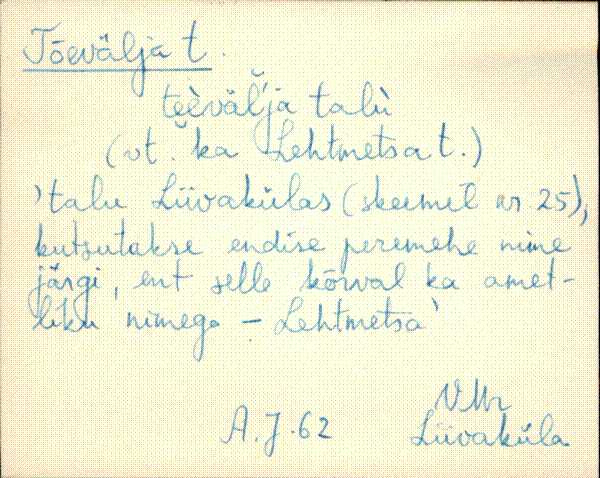 Tõevälja t.
tèèväĺ̆ja talù
(vt. ka Lehtmetsa t.)
'talu Liivakülas (skeemil nr 25),
kutsutakse endise peremehe nime
järgi, ent selle kõrval ka amet-
liku nimega – Lehtmetsa'
A. J. 62
VMr
Liivaküla